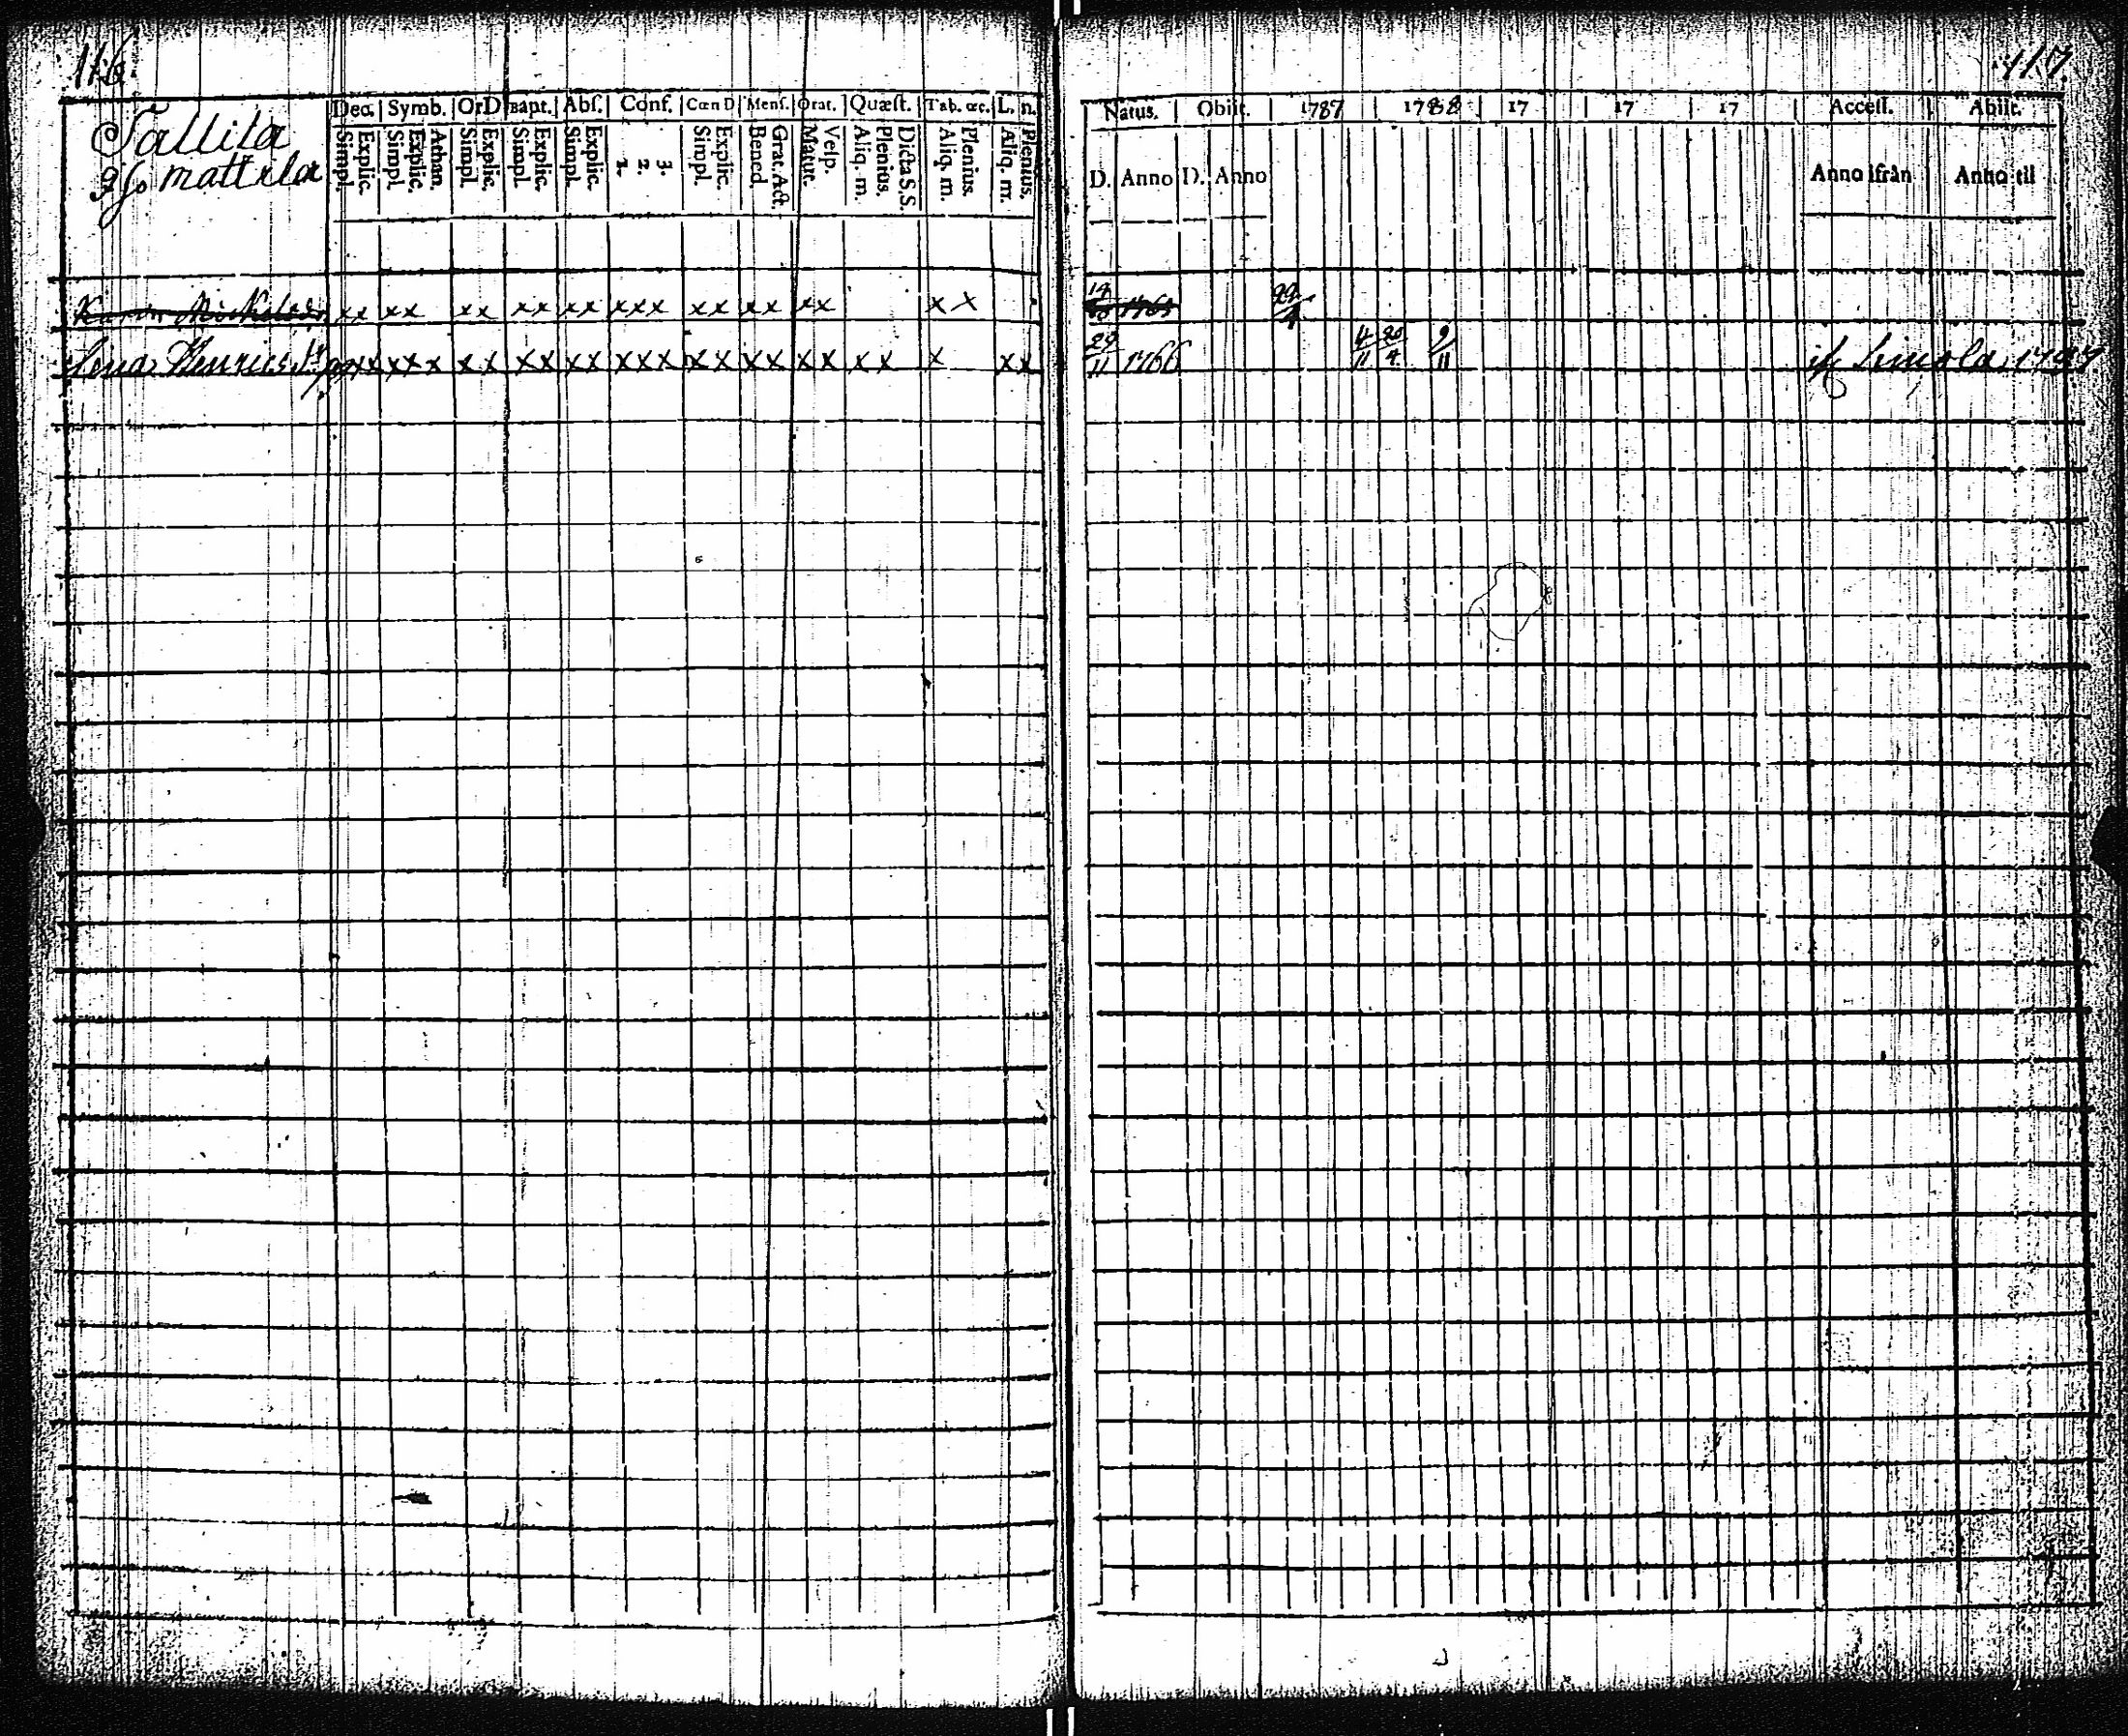 116
Tallila
mattila
Dec. Symb. OrD Bapt. Abſ. Conf. Cœn D Menſ. Orat. Quæſt. Tab. œc. L. n.
Simpl. Explic. Simpl. Explic. Athan. Simpl. Explic. Simpl. Explic. Simpl. Explic. 1. 2. 3. Simpl. Explic. Bened. Grat. Act. Matut. Veſp. Aliq. m. Plenius. Dicta S.S. Aliq. m. Plenius. Aliq. m. Plenius.
xx xx xx xx xx xxx xx xx xx x x
Henrics xx xxx xx xx xx xxx xx xx xx xx x xx
117
Natus. Obiit. 1787 1788 17 17 17 Acceſſ. Abiit.
D. Anno D. Anno Anno ifrån Anno til
29/11 1766 4/11 20/4 9/11